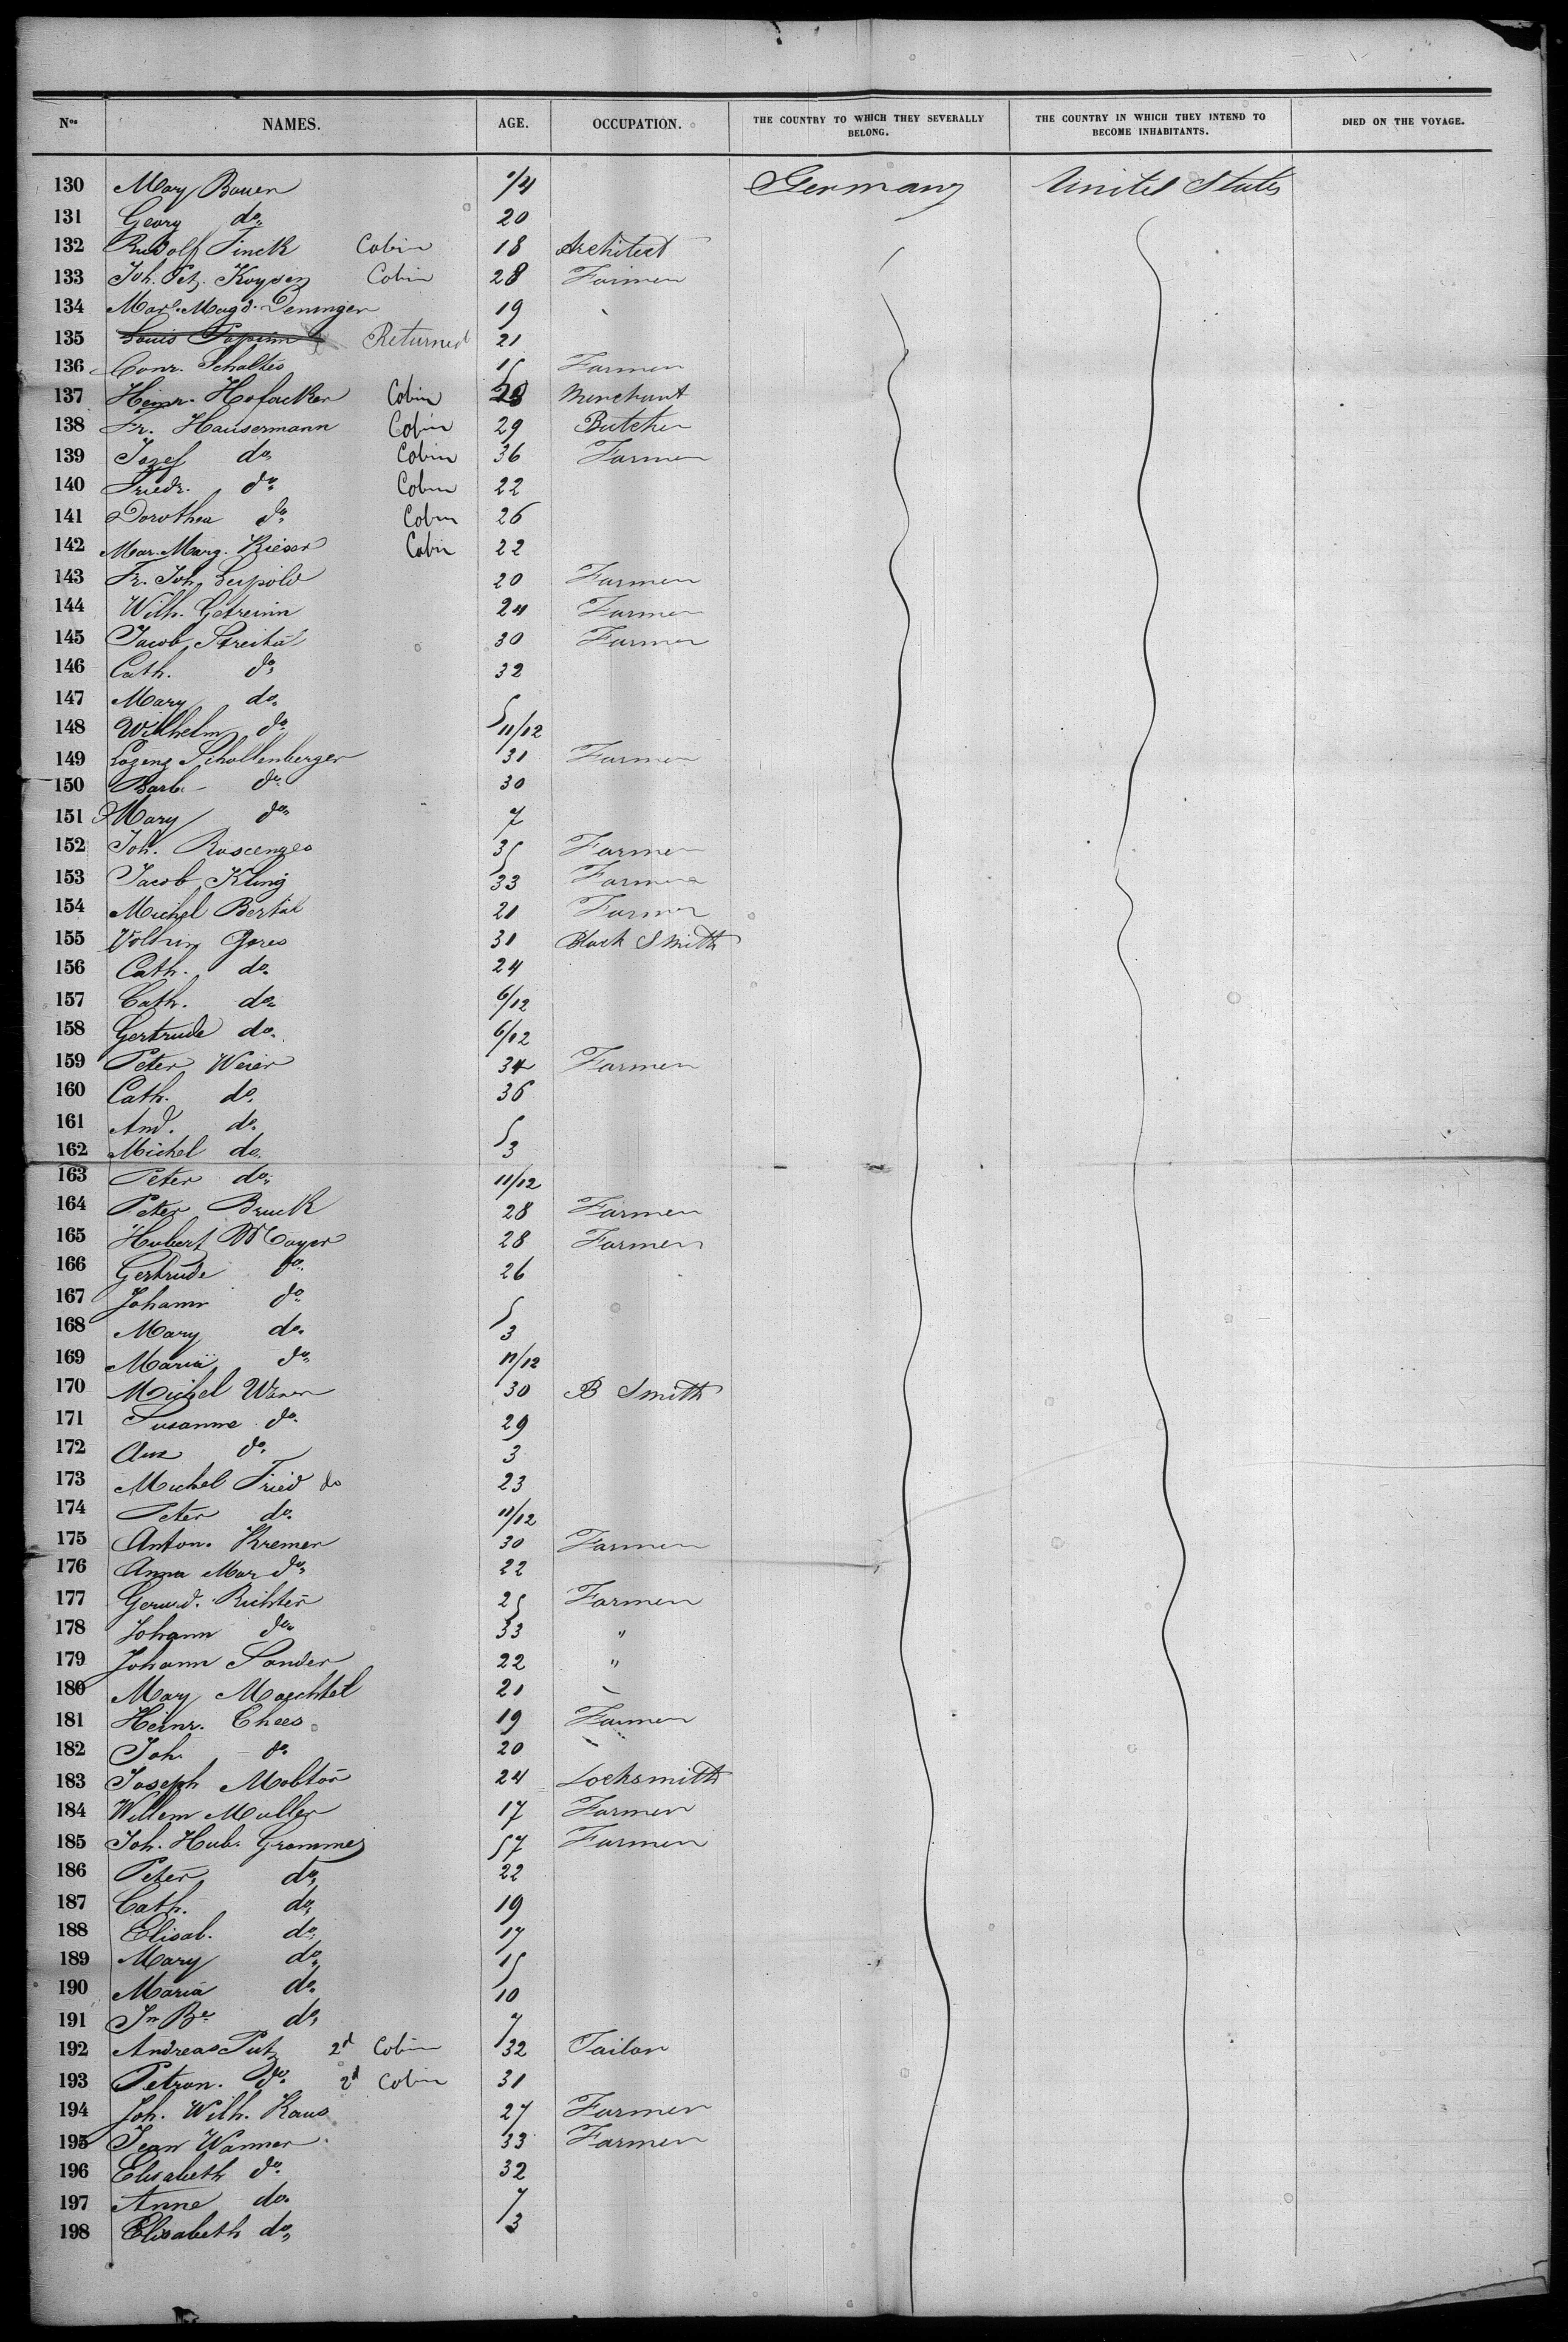 Nos NAMES. AGE. OCCUPATION. THE COUNTRY TO WHICH THEY SEVERALLY BELONG. THE COUNTRY IN WHICH THEY INTEND TO BECOME INHABITANTS. DIED ON THE VOYAGE.
130 Mary Bauer 1/4 Germany United States
131 Georg do. 20
132 Rudolf Finck Cabin 18 Architect
133 Joh. Cabin 28 Farmer
134 Mar. Magd. Deninger 19
135 Louis Returned 21
136 Conr. Schaltes 15 Farmer
137 Heinr. Hofacker Cabin 28 Merchant
138 Fr. Hausermann Cabin 29 Butcher
139 Jozef do. Cabin 36 Farmer
140 Friedr. do. Cabin 22
141 Dorothea do. Cabin 26
142 Mar. Marg. Kieser Cabin 22
143 Fr. Joh. Leipold 20 Farmer
144 Wilh. 24 Farmer
145 Jacob 30 Farmer
146 Cath. do. 32
147 Mary do. 5
148 Wilhelm do. 11/12
149 Schollenberger 31 Farmer
150 Barb. do. 30
151 Mary do. 7
152 Joh. 35 Farmer
153 Jacob Kling 33 Farmer
154 Michel 21 Farmer
155 Gores 31 Black Smith
156 Cath. do. 24
157 Cath. do. 6/12
158 Gertrude do. 6/12
159 Peter Weier 34 Farmer
160 Cath. do. 36
161 And. do. 5
162 Michel do. 3
163 Peter do. 11/12
164 Peter Bruck 28 Farmer
165 Hubert Mayer 28 Farmer
166 Gertrude do. 26
167 Johann do. 5
168 Mary do. 3
169 Maria do. 11/12
170 Michel 30 B Smith
171 Susanne do. 29
172 do. 3
173 Michel Fried do 23
174 Peter do. 11/12
175 Anton. Kremer 30 Farmer
176 Anna Mar do. 22
177 Richter 25 Farmer
178 Johann do. 33 "
179 Johann Sander 22 "
180 Mary Maechtel 21
181 Heinr. Chees 19 Farmer
182 Joh. do. 20
183 Joseph 24 Locksmith
184 Willem Muller 17 Farmer
185 Joh. Hub. Grommes 57 Farmer
186 Peter do. 22
187 Cath. do. 19
188 Elisab. do. 17
189 Mary do. 15
190 Maria do. 10
191 do. 7
192 Andreas Putz 2d Cabin 32 Tailor
193 Petron. do. 2d Cabin 31
194 Joh. Wilh. Kaus 27 Farmer
195 Jean Wanner 33 Farmer
196 Elisabeth do. 32
197 Anne do. 7
198 Elisabeth do. 3